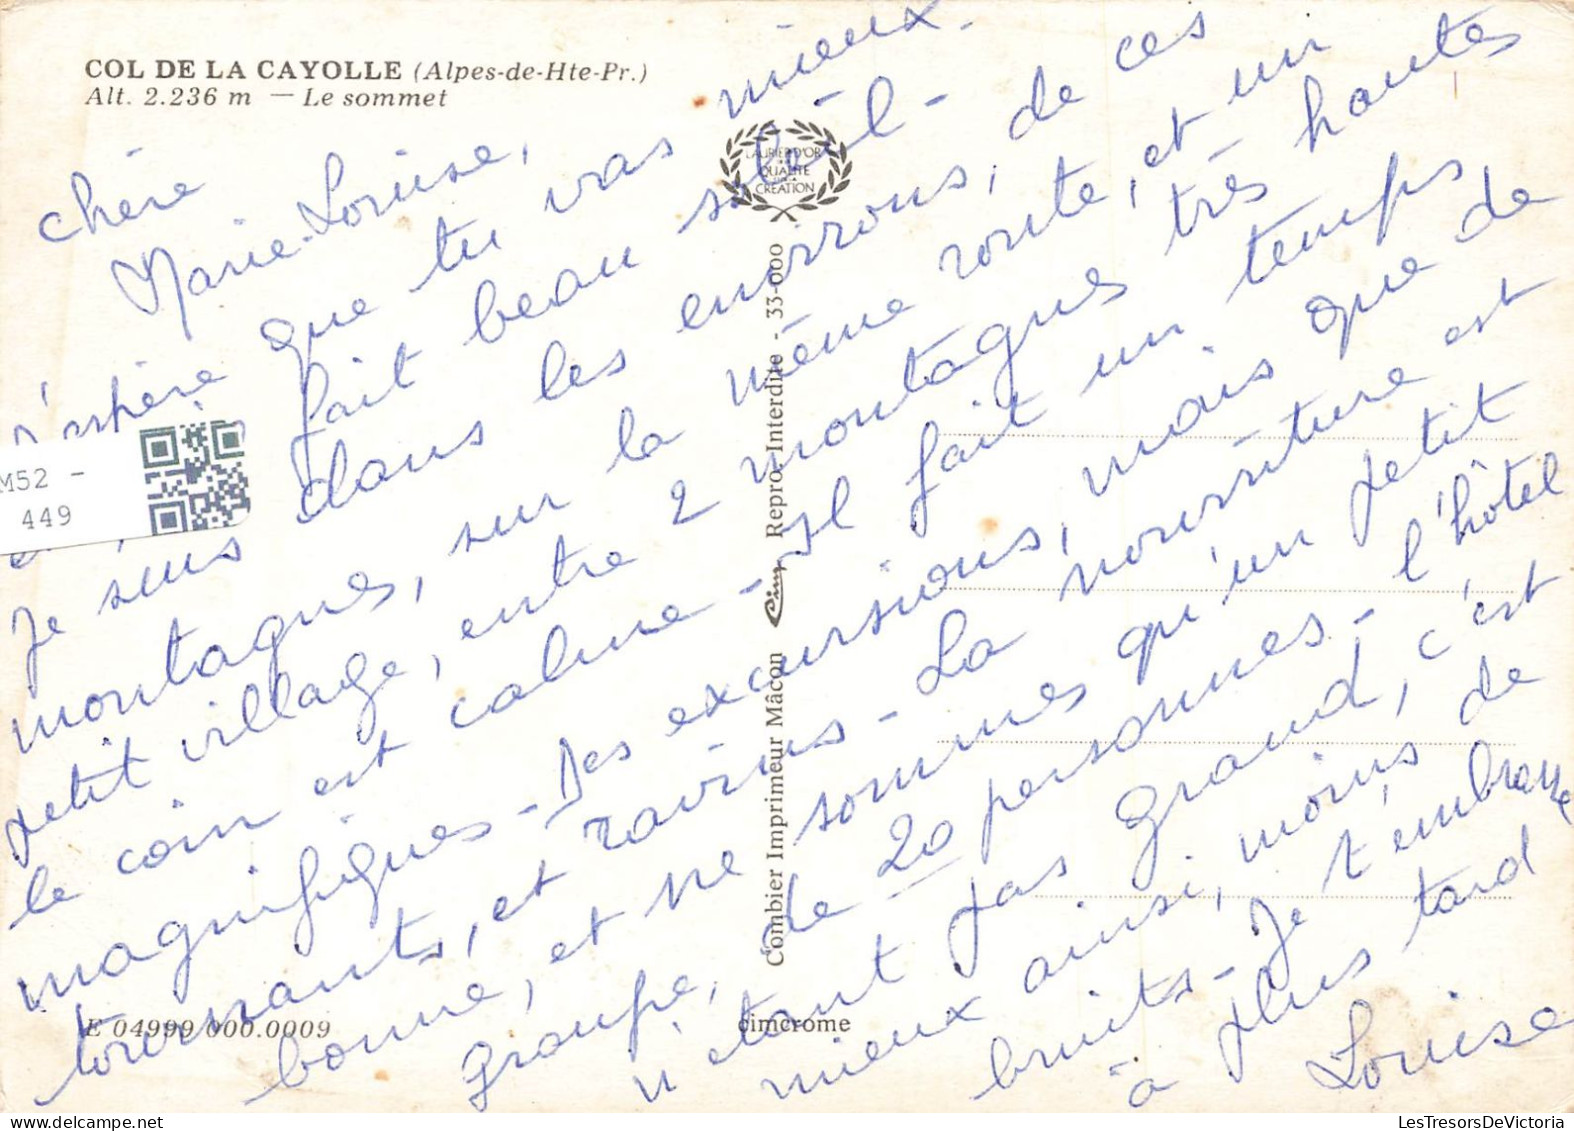 COL DE LA CAYOLLE (Alpes-de-Hte-Pr.)
Alt. 2.236 m — Le sommet
LAURIER D'OR
DE
QUALITÉ
CRÉATION
chère
Marie-Louise,
J'espère que tu vas mieux.
fait beau soleil -
Je suis dans les environs, de ces
montagnes, sur la même route, et un
petit village, entre 2 montagnes très hautes
le coin est calme - Il fait un temps
magnifiques - Des excursions, mais que de
tournants, et ravins - La nourriture est
bonne, et ne sommes qu'un petit
groupe, de 20 personnes - l'hôtel
n'étant pas grand, c'est
mieux ainsi, moins de
bruits - Je t'embrasse
à plus tard
Louise
M52 -
449
Combier Imprimeur Mâcon Cim Repro. Interdite - 33-000
E 04999 000.0009
cimcrome
LesTresorsDeVictoria.com